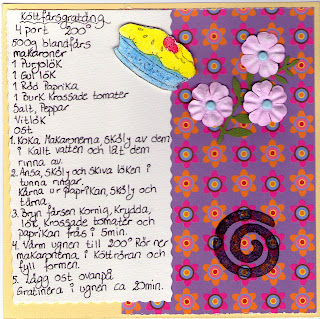 Köttfärsgratäng
4 port 200°
500g blandfärs
makaroner
1 Purjolök
1 Gul lök
1 Röd Paprika
1 Burk Krossade tomater
Salt, Peppar
Vitlök
Ost
1. Koka Makaronerna, skölj av dem
i kallt vatten och låt dem
rinna av.
2. Ansa, skölj och skiva löken i
tunna ringar.
Kärna ur paprikan, skölj och
tärna.
3. Bryn färsen kornig, krydda,
lök, krossade tomater och
paprikan fräs i 5min.
4. Värm ugnen till 200° Rör ner
makaronerna i köttröran och
fyll formen.
5. Lägg ost ovanpå
Gratinera i ugnen ca 20min.